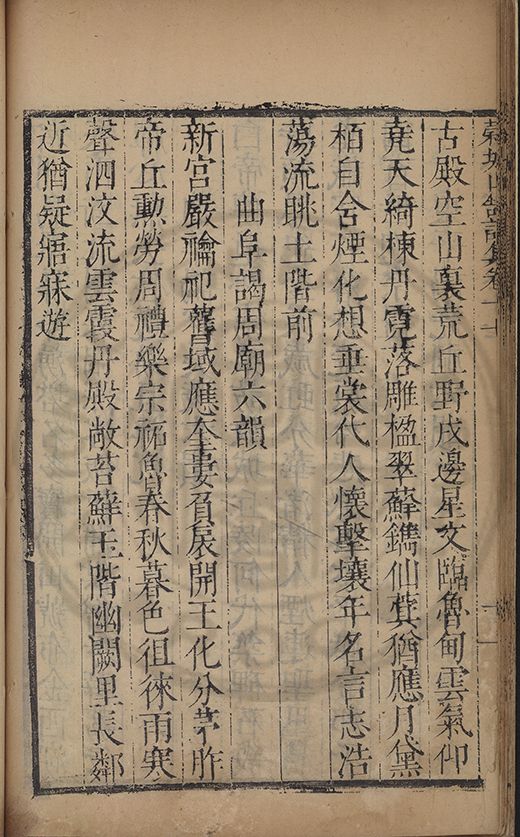 穀城山館詩集卷
古殿空山裏荒丘野戍邊星文臨魯甸雲氣仰
堯天綺棟丹霓落雕楹翠蘚鐫仙蓂猶應月黛
栢自含煙化想垂裳代人懷擊壤年名言志浩
蕩流眺土階前
曲阜謁周廟六韻
新宮嚴禴祀舊域應奎婁負扆開王化分茅胙
帝丘勲勞周禮樂宗祏魯春秋暮色徂徠雨寒
聲泗汶流雲霞丹殿敞苔蘚玉階幽闕里長鄰
近猶疑寤寐遊